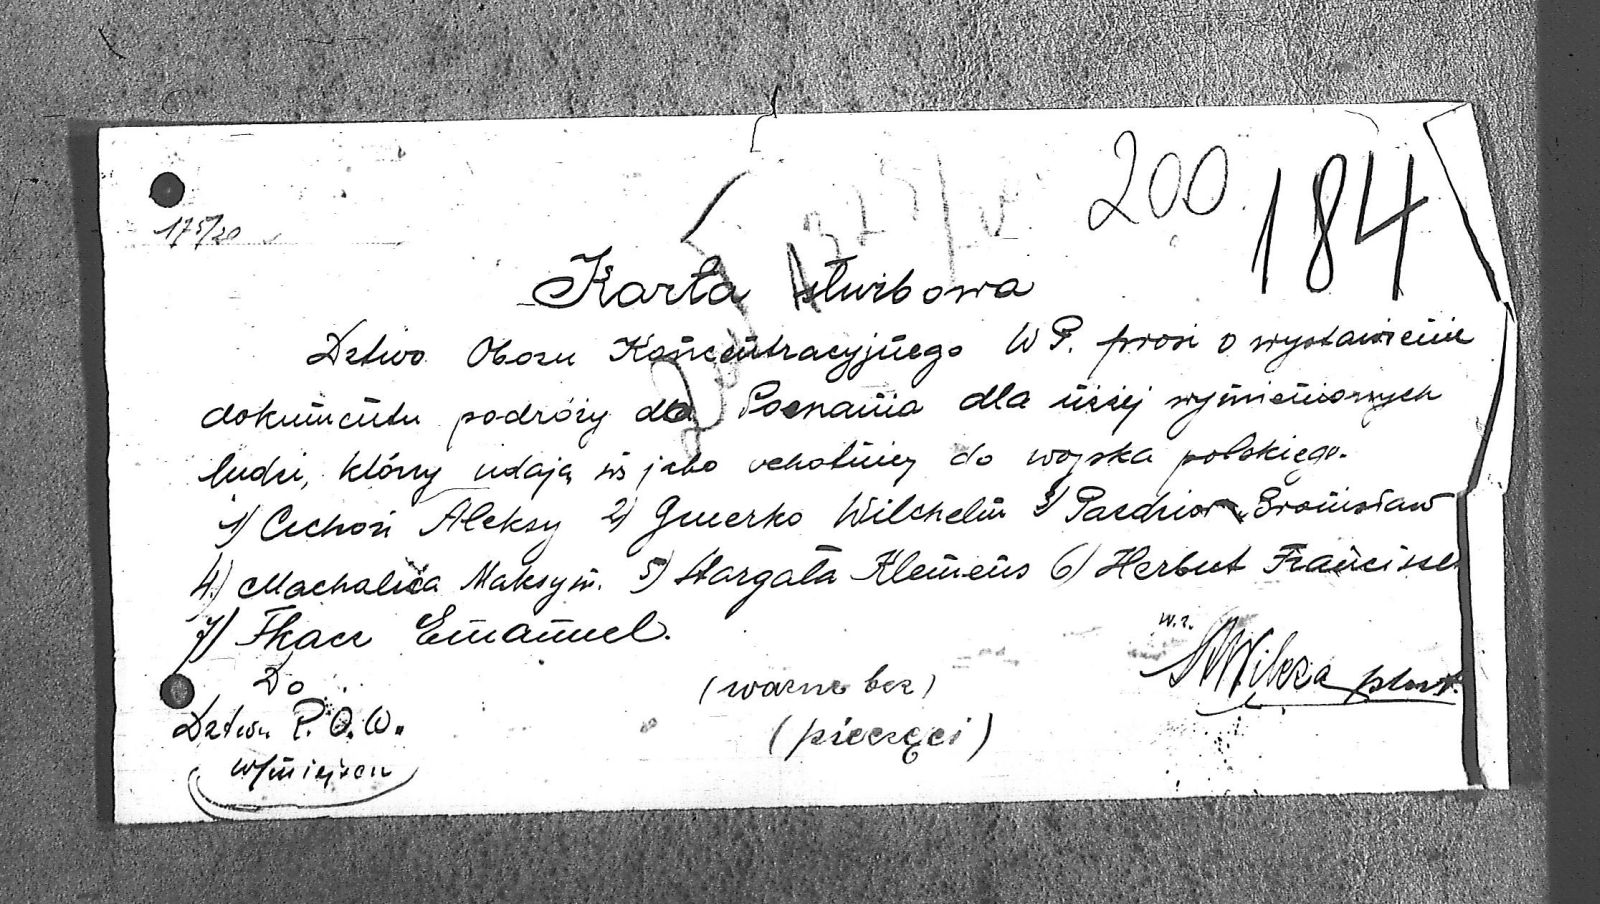 200
184
175/20
Karta służbowa
Dztwo Obozu Koncentracyjnego W P. prosi o wystawienie
dokumentu podróży dla Poznania dla niżej wymienionych
ludzi, którzy udają się jako ochotnicy do wojska polskiego.
1) Cichoń Aleksy 2) Gmerko Wilchelm 3) Pazdzior Bronisław
4.) Machalica Maksym. 5) Stargała Klemens 6) Herbut Franciszek
7) Tkacz Emanuel.
w. z.
Do
Dztwu P. O. W.
w/miejscu
(ważne bez)
(pieczęci)